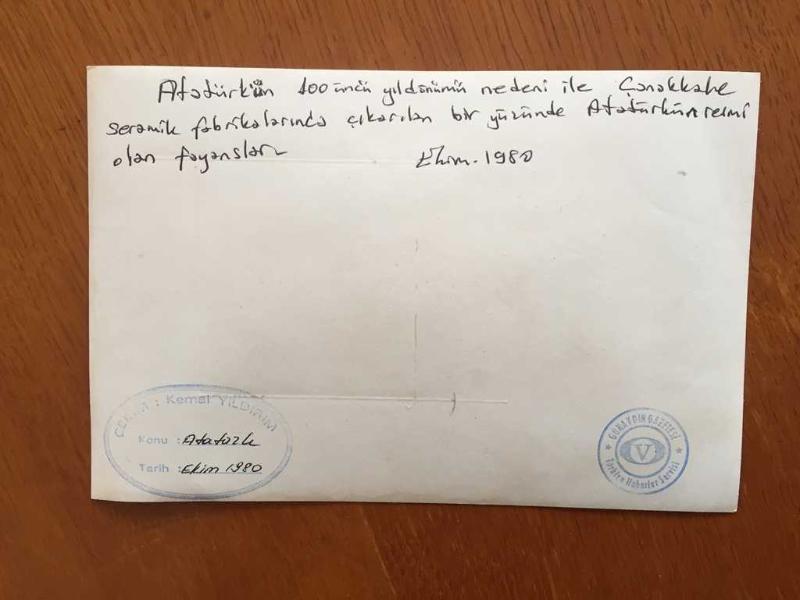 Atatürkün 100 üncü yıldönümü nedeni ile Çanakkale
seramik fabrikalarında çıkarılan bir yüzünde Atatürkün resmi
olan fayanslar
Ekim-1980
ÇEKİM : Kemal YILDIRIM
Konu : Atatürk
Tarih : Ekim 1980
GÜNAYDIN GAZETESİ
V
Türkiye Haberler Servisi